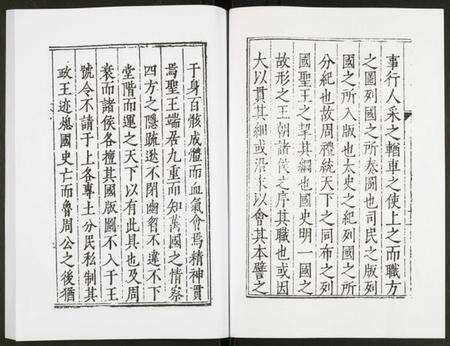 事行人采之輶車之使上之而職方
之圖列國之所奏闢也司民之版列
國之所入版也太史之紀列國之所
分紀也故周禮統天下之同布之列
國聖王之挈其綱也國史明一國之
故形之王朝諸侯之序其職也或因
大以貫其細或沿末以會其本譬之
于身百骸成體而血氣會焉精神貫
焉聖王端居九重而知萬國之情察
四方之隱疏逖不閉幽窅不違不下
堂階而運之天下以有此具也及周
衰而諸侯各擅其國版圖不入于王
號令不請于上各專土分民私制其
政王迹熄國史亡而魯周公之後猶